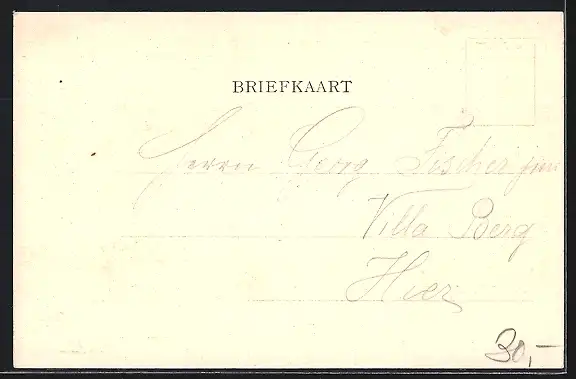 BRIEFKAART
Herrn Georg Fischer jun
Villa Berg
Hier
30,-